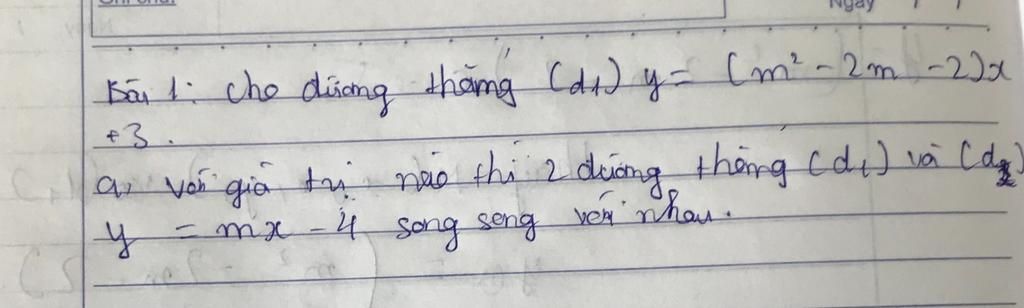 Ngày / /
Bài 1: Cho đường thẳng (d1) y = (m² - 2m - 2)x
+3.
a, với giá trị nào thì 2 đường thẳng (d1) và (d2)
y = mx - 4 song song với nhau.